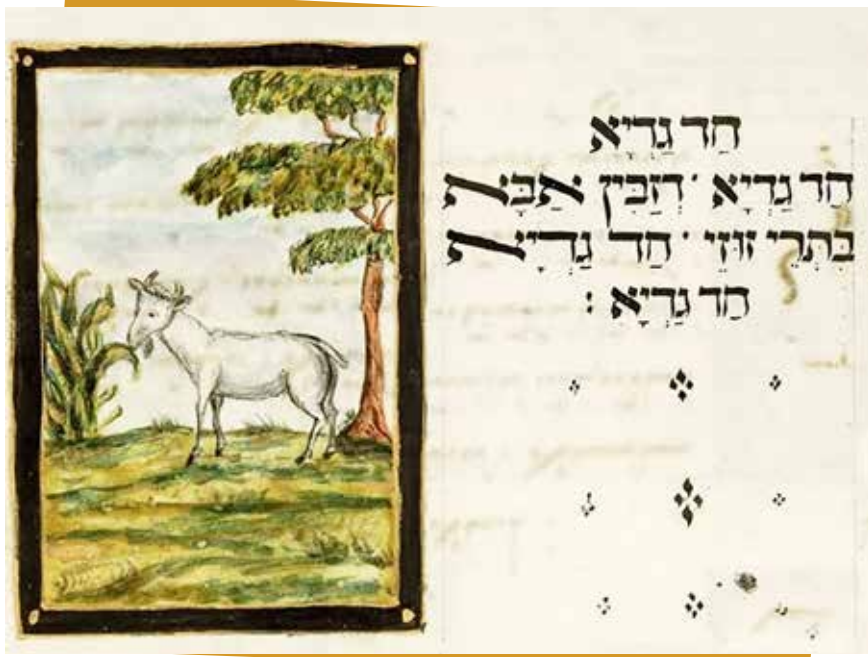 חַד גַּדְיָא
חַד גַּדְיָא ׳ דְּזַבִּין אַבָּא
בִּתְרֵי זוּזֵי ׳ חַד גַּדְיָא
חַד גַּדְיָא :